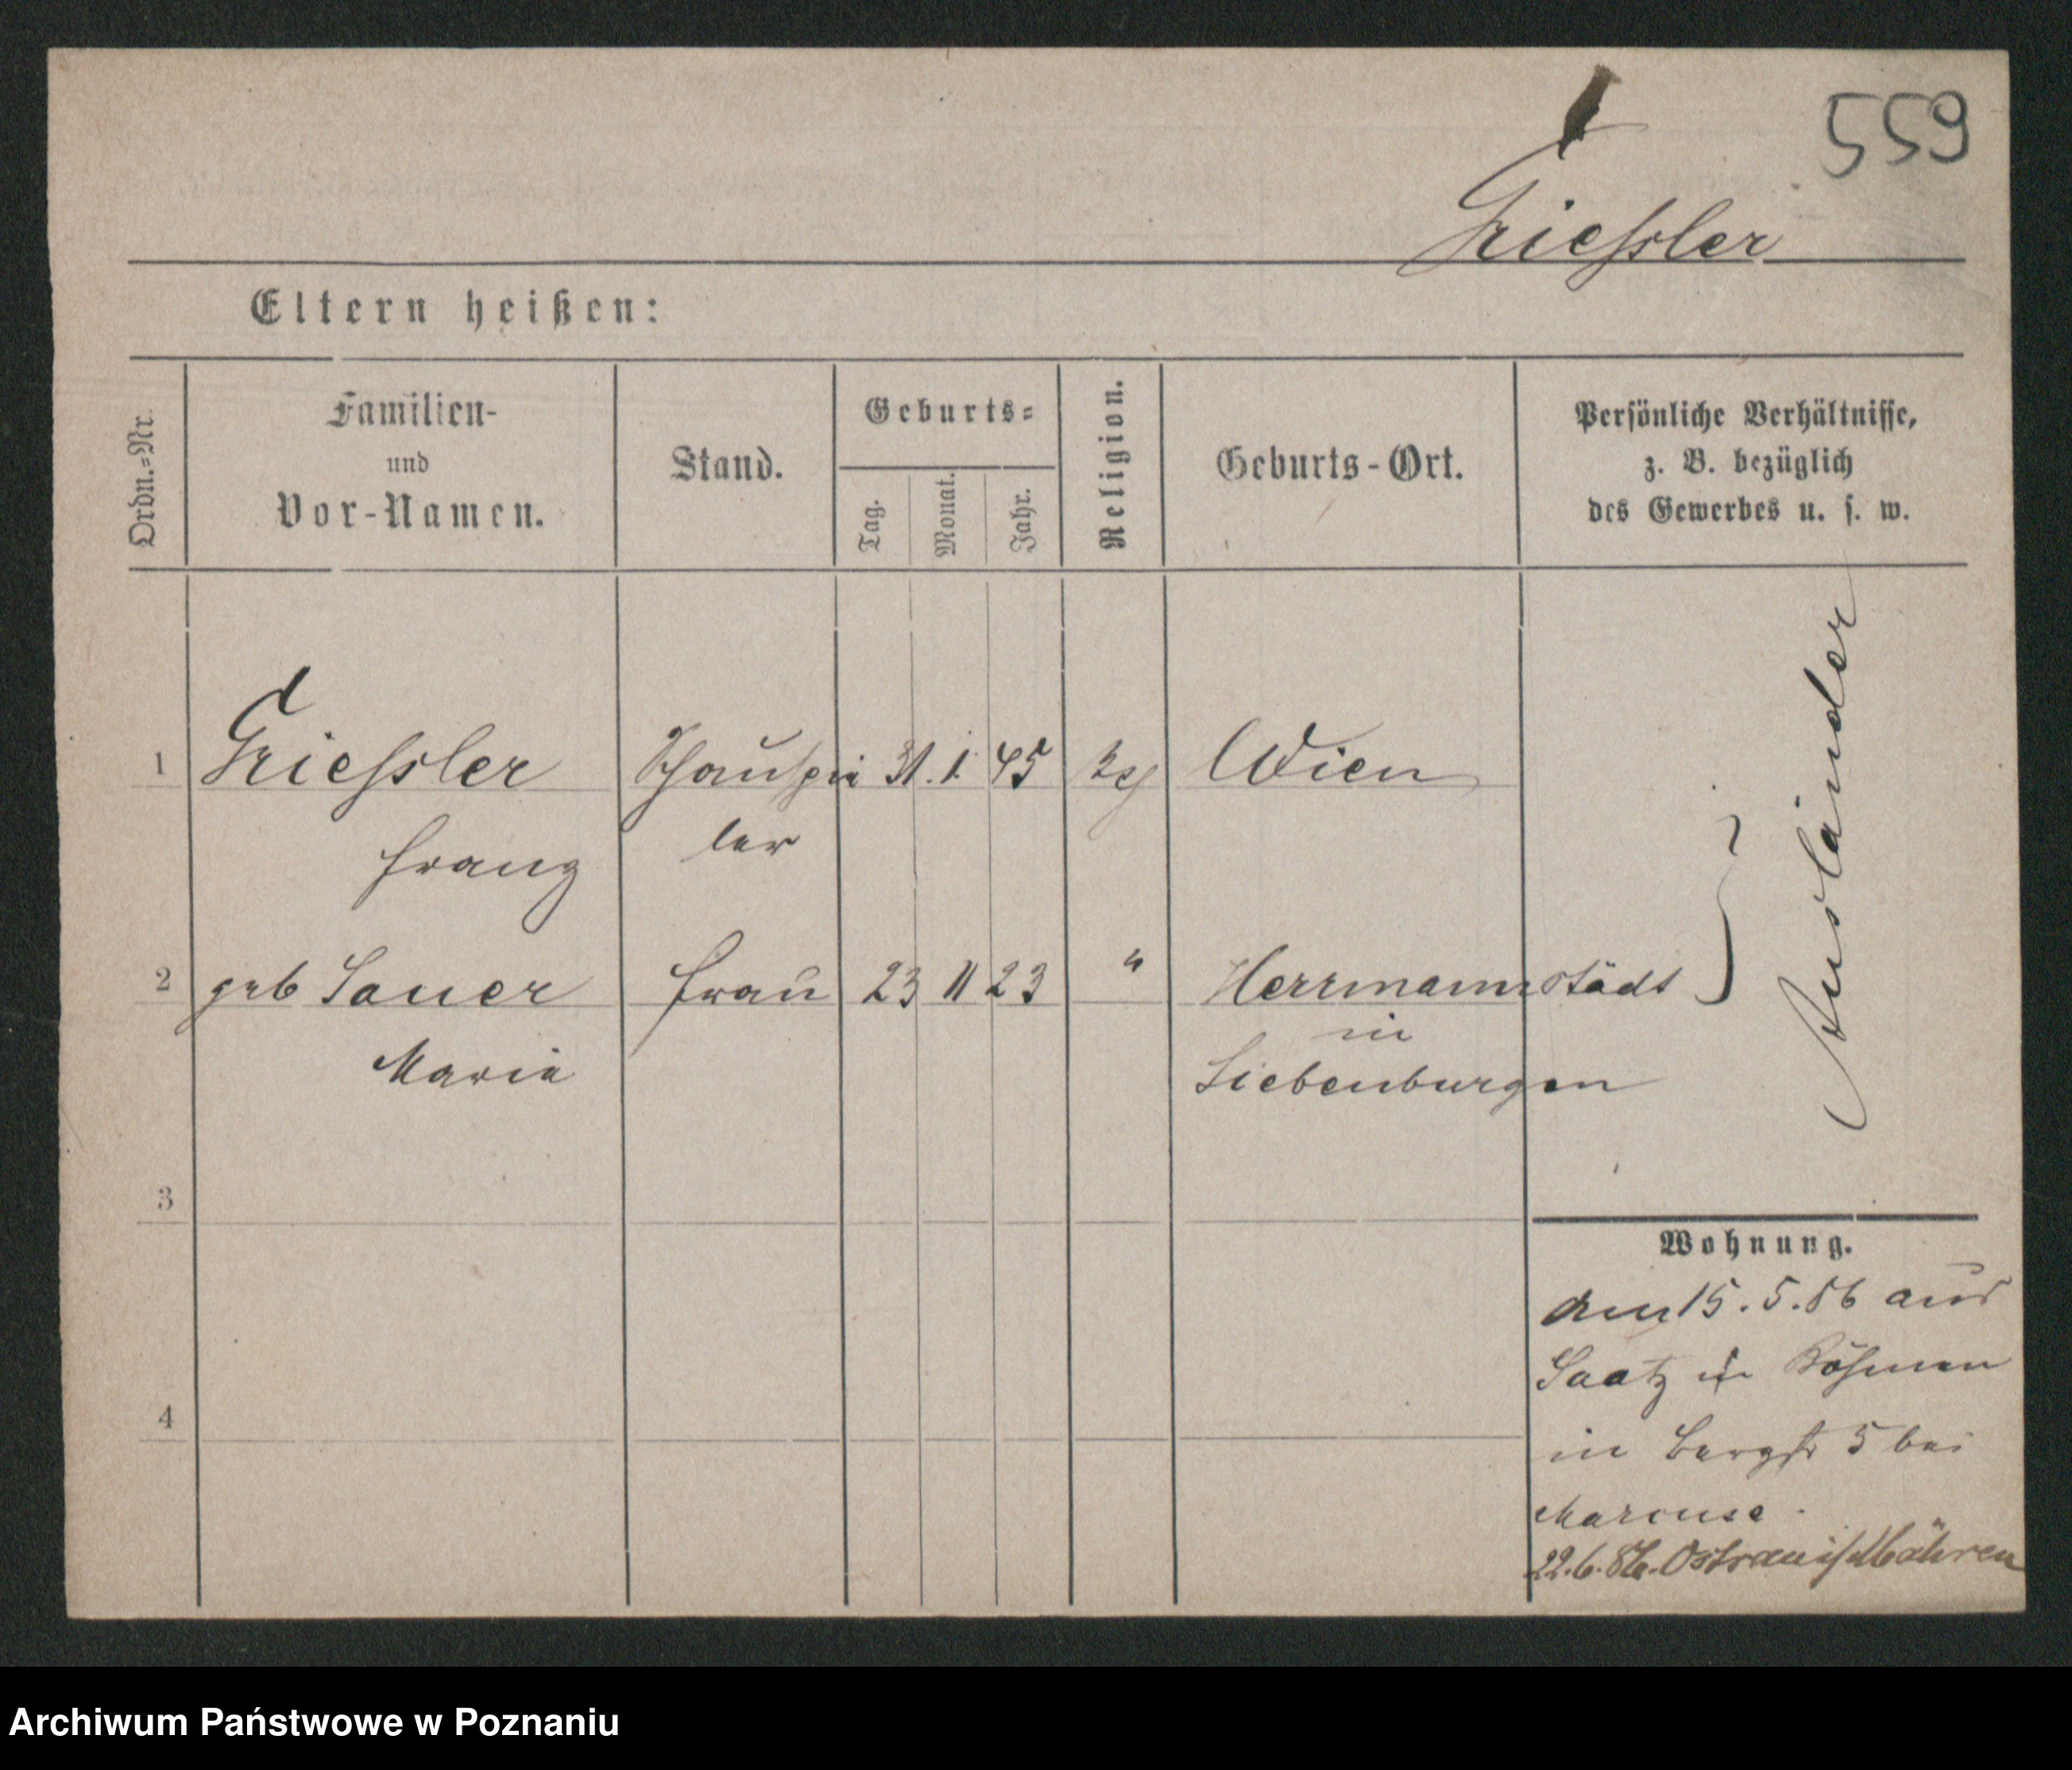 559
Friessler
Eltern heißen:
Ordn.=Nr.
Familien-
und
Vor-Namen.
Stand.
Geburts=
Tag.
Monat.
Jahr.
Religion.
Geburts-Ort.
Persönliche Verhältnisse,
z. B. bezüglich
des Gewerbes u. s. w.
1 Friessler Schauspie 31. 1. 45 Wien
ler
Franz
2 geb Sauer Frau 23 11 23 " Herrmannstädt
in
Marie Siebenburgen
Ausländer
3
4
Wohnung.
Am 15. 5. 86 aus
Saatz in Böhmen
in Bergstr 5 bei
Marcuse.
22. 6. 86. Ostrau i/Mähren
Archiwum Państwowe w Poznaniu